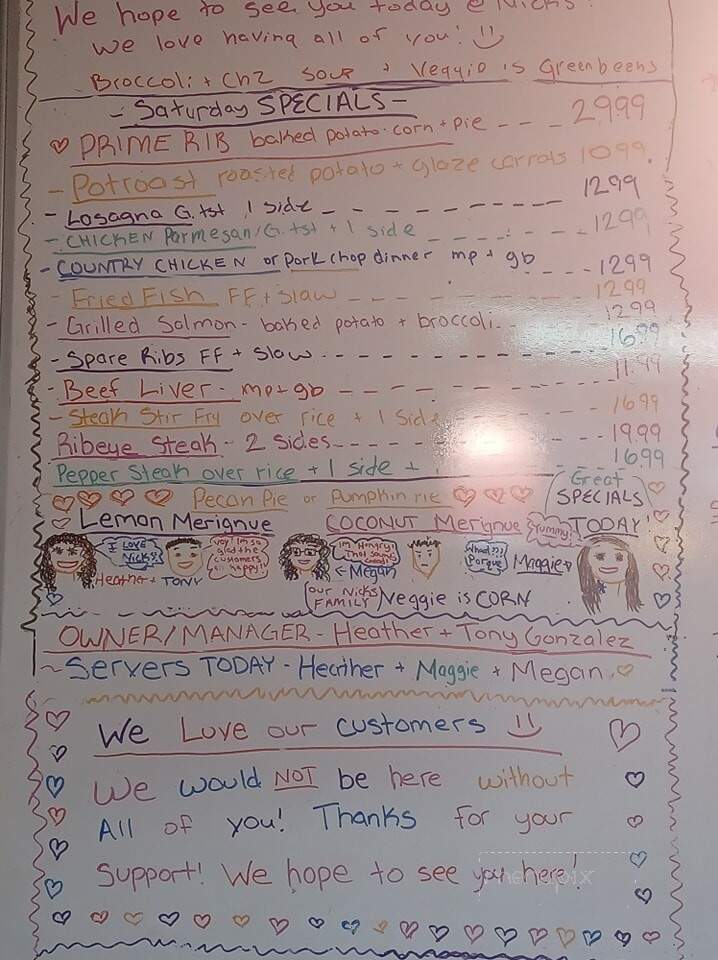 We hope to see you today @ Nicks!
we love having all of you!
Broccoli + Chz Soup + Veggie is Greenbeens
- Saturday SPECIALS -
PRIME RIB baked potato. corn + pie --- 2999
- Potroast roasted potato + glaze carrots 1099.
- Losagna G.tst 1 side --------- 1299
- CHICKEN Parmesan/G.tst + 1 side ------ 1299
- COUNTRY CHICKEN or Pork chop dinner mp + gb ---- 1299
- Fried Fish FF + slaw --------- 1299
- Grilled Salmon - baked potato + broccoli.-- 1299
- Spare Ribs FF + Slaw.----------- 1699
- Beef Liver - mp+gb ---------- 11.99
- Steak Stir Fry over rice + 1 Side ------ 1699
Ribeye Steak - 2 Sides.---------- 19.99
Pepper Steak over rice + 1 side + ----- 16.99
Pecan Pie or Pumpkin Pie Great SPECIALS
Lemon Merignue COCONUT Merignue Yummy! TODAY!
I LOVE Nick's! Yay! Im so glad the customers r happy! Im Hungry! That sounds Good! What??? Porque
Heather + TONY ← Megan Maggie
OUR Nicks FAMILY Veggie is CORN
OWNER/MANAGER - Heather + Tony Gonzalez
Servers TODAY - Heather + Maggie + Megan
We Love our customers
We would NOT be here without
All of you! Thanks for your
Support! We hope to see you here!